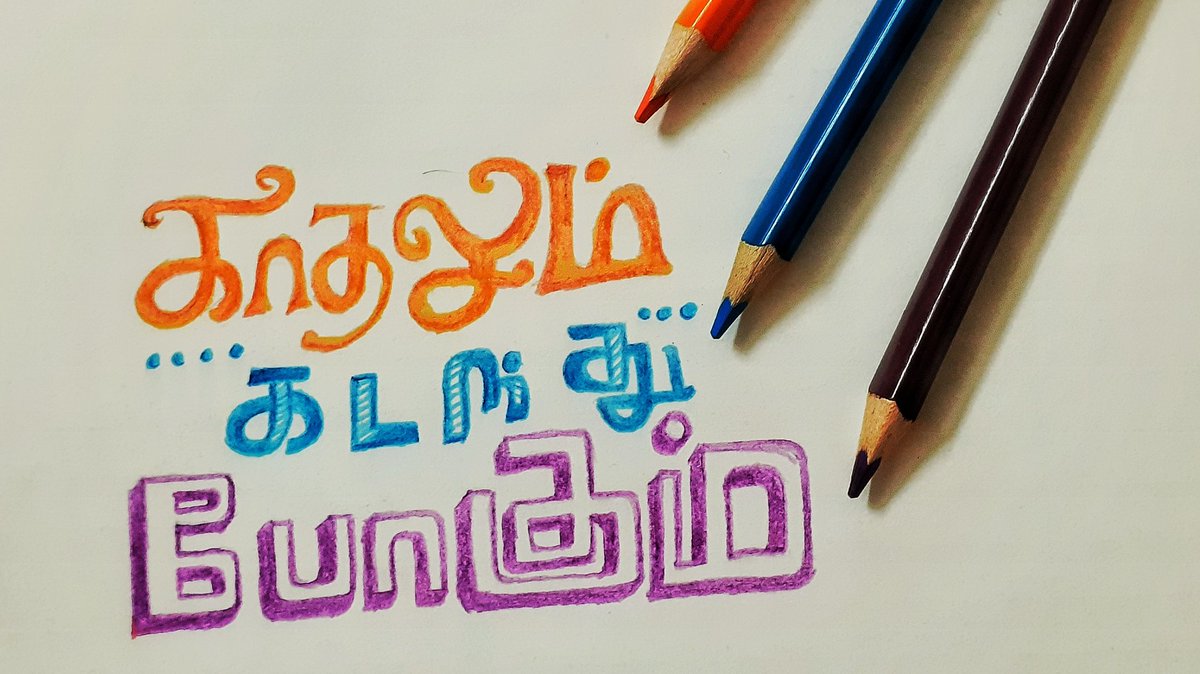 காதலும்
கடந்து
போகும்